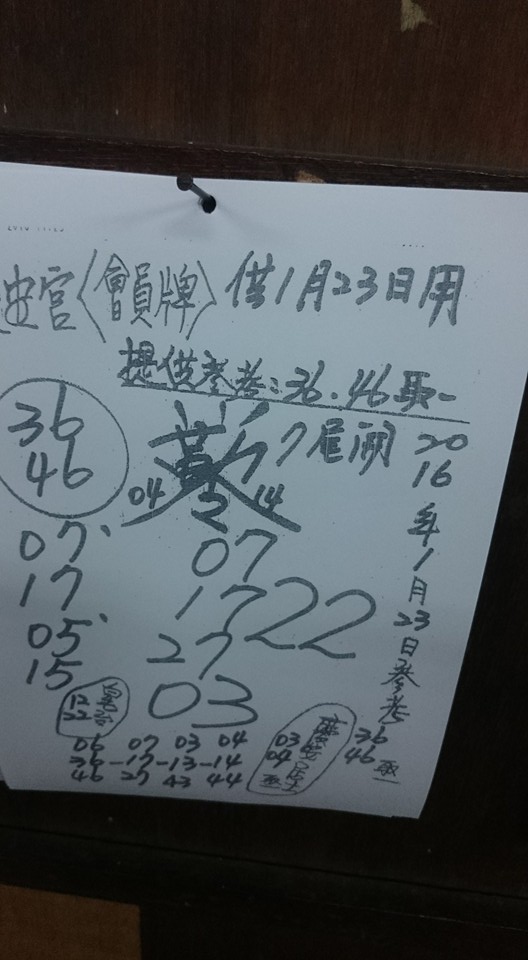 迷宮〈會員牌〉供1月23日用
提供參考:36.46取一
36
46
7尾闭
04 2 14
07
17
05
15
07
17
27
22
03
2016年1月23日參考
12
22
06 07 03 04
36-17-13-14
46 27 43 44
03
04
36
46 取一